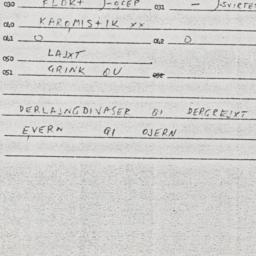 030 FLOKT J-OCEP 031 - J-SVIRTE
040 KAROMISTIK xx
041 O 042 O
050 LAJXT
051 GRINK OU 052
DERLAJNGDIVASER BI DERGREJXT
EVERN BI OJERN